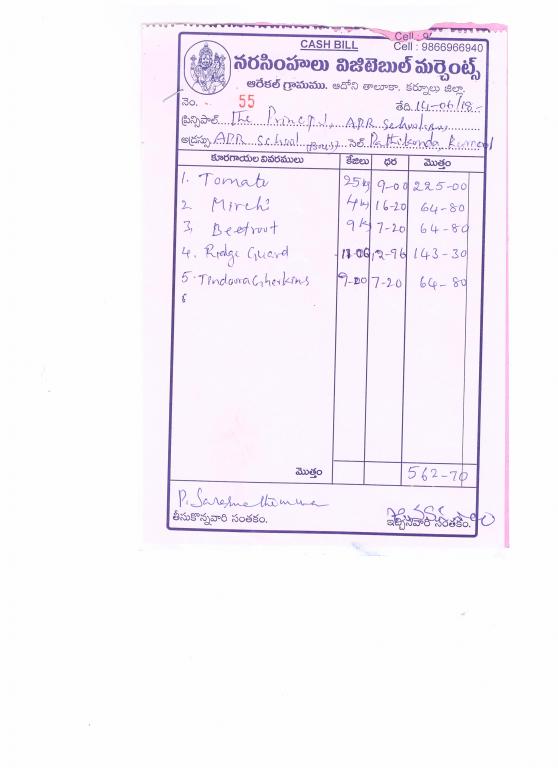 CASH BILL
Cell : 9
Cell : 9866966940
నరసింహులు విజిటెబుల్ మర్చెంట్స్
ఆరేకల్ గ్రామము. ఆదోని తాలూకా. కర్నూలు జిల్లా.
నెం. 55 తేది 14-06/18-
ప్రిన్సిపాల్ The Principal, APR School
అడ్రస్సు APR School (Boys) సెల్ Pathikonda, Kurnool
కూరగాయల వివరములు కేజీలు ధర మొత్తం
1. Tomato 25kg 9-00 225-00
2 Mirchi 4kg 16-20 64-80
3, Beetroot 9kg 7-20 64-80
4. Ridge Guard 11-06 12-96 143-30
5. Tindora Gherkins 9-00 7-20 64-80
6
మొత్తం 562-70
తీసుకొన్నవారి సంతకం. ఇచ్చినవారి సంతకం.